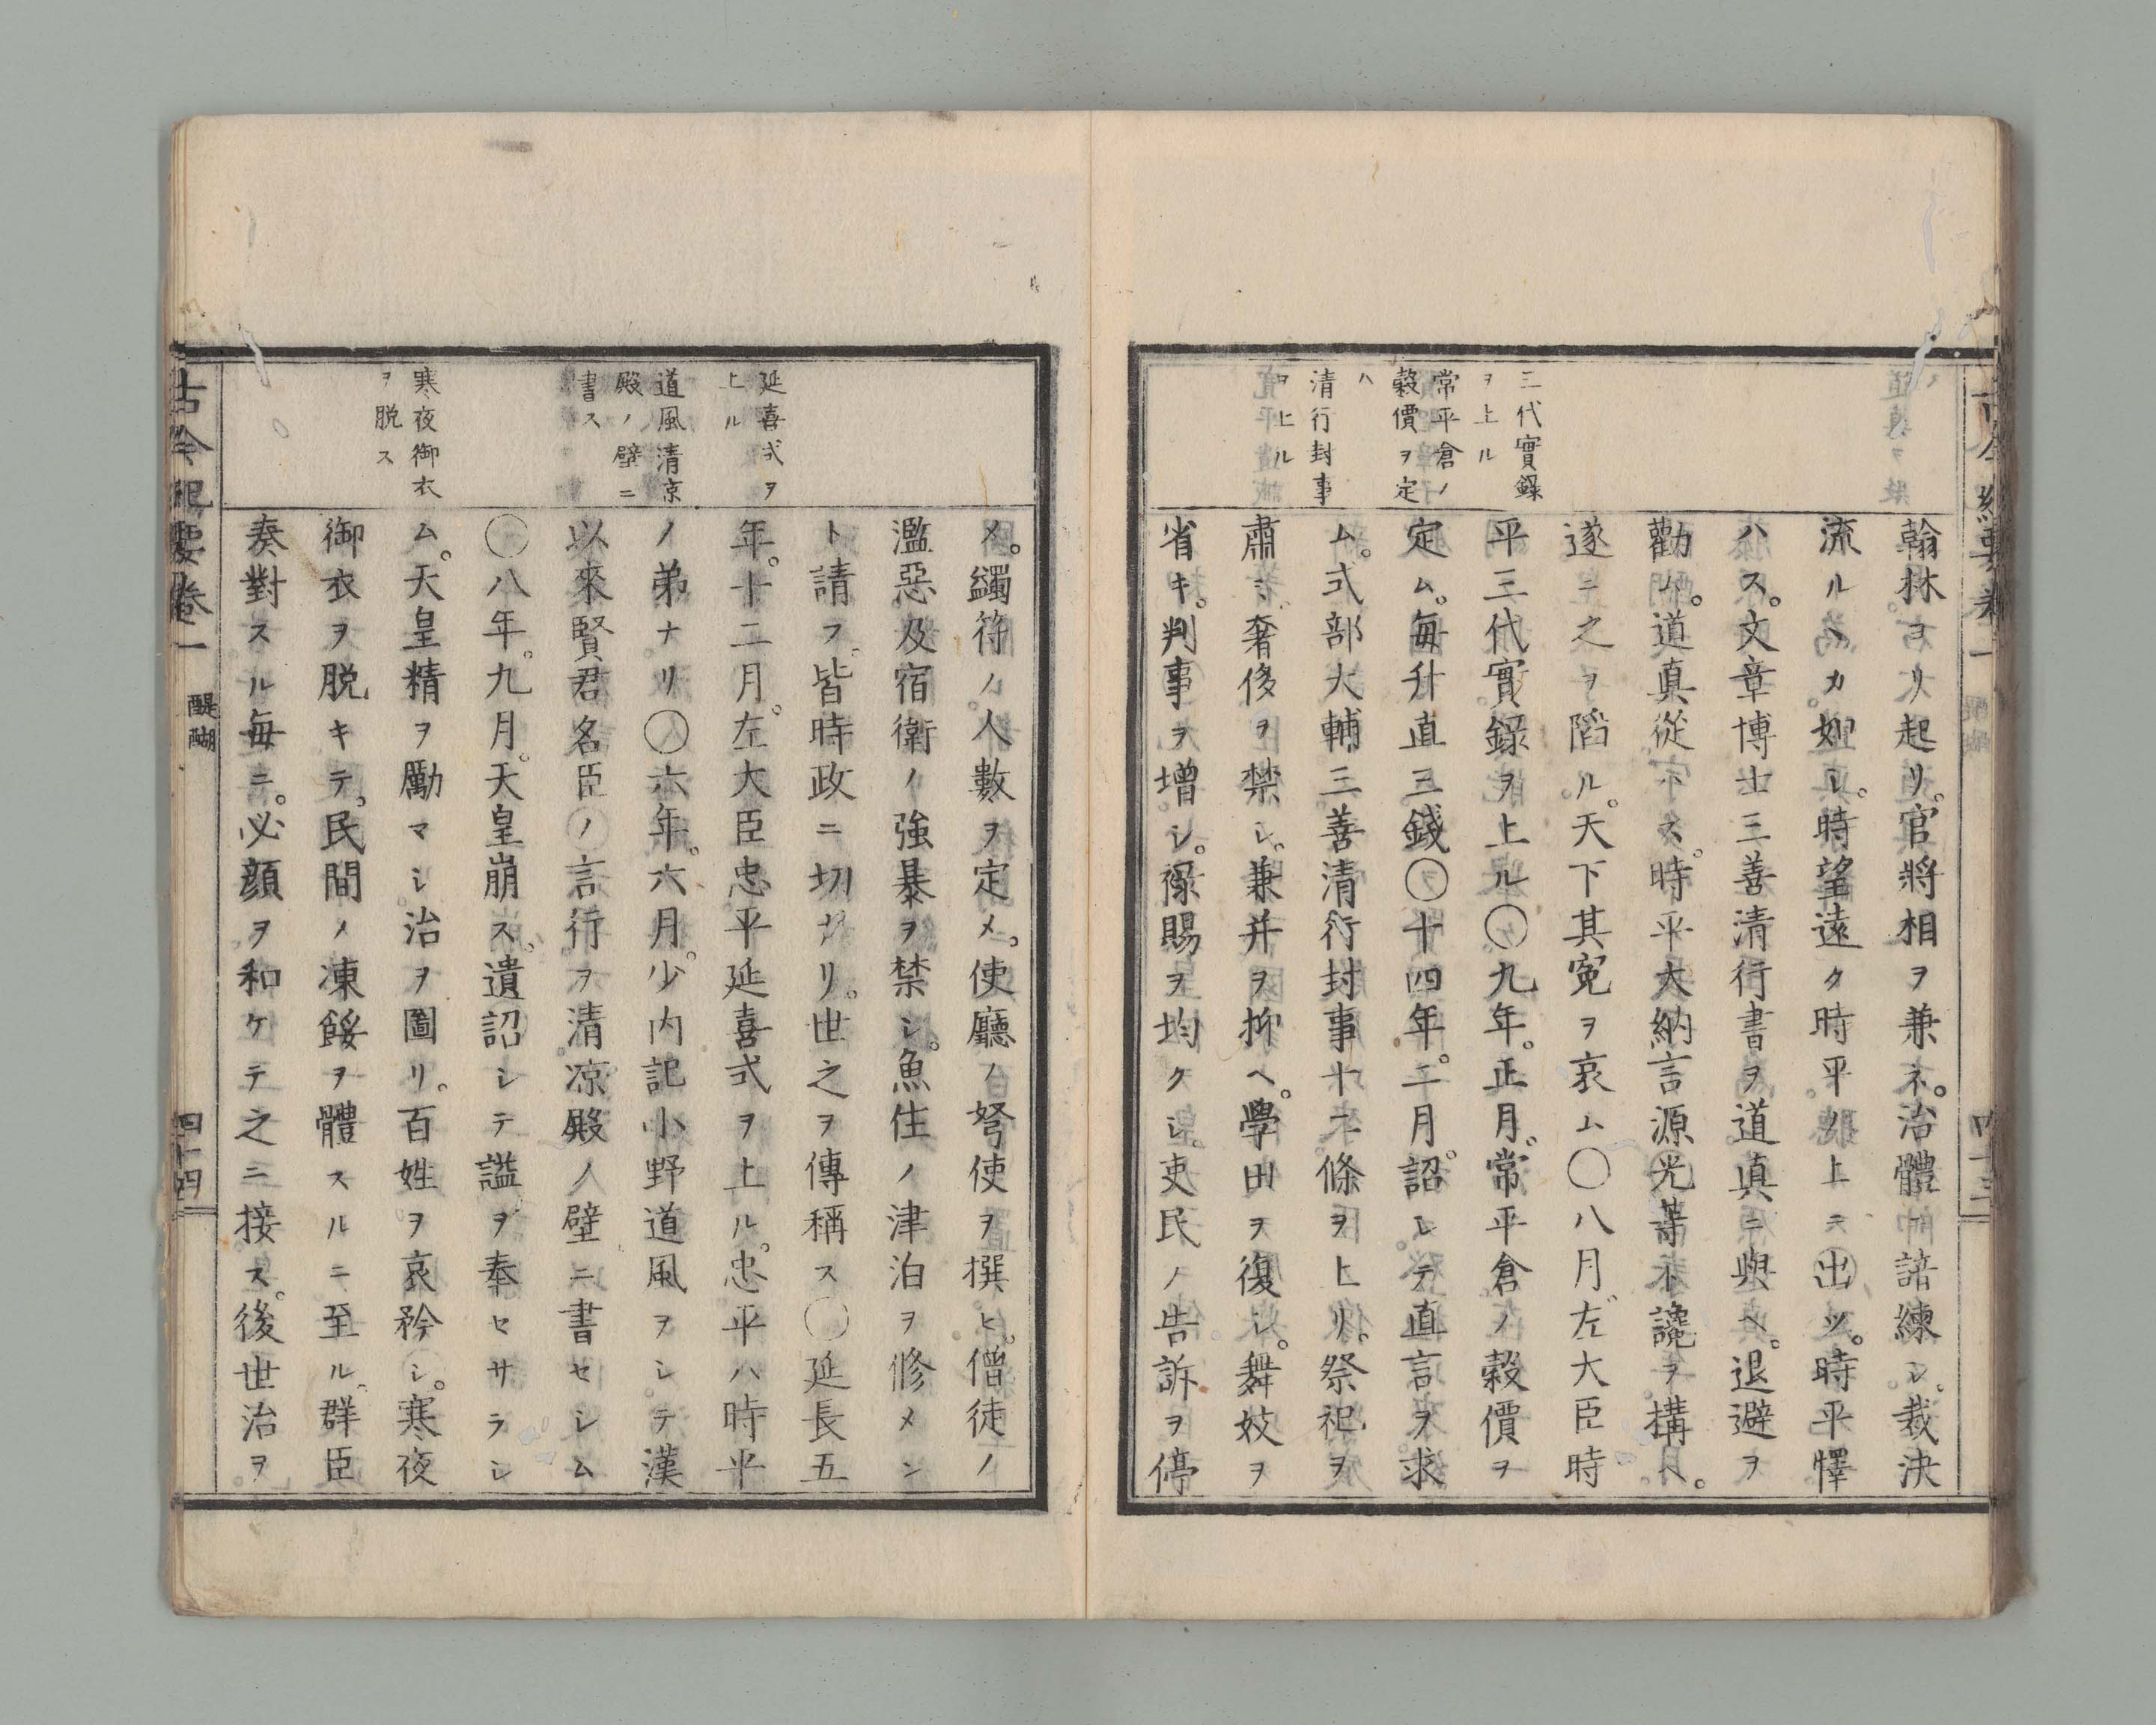 三代實錄
ヲ上ル
常平倉ノ
穀價ヲ定
ム
清行封事
ヲ上ル
翰林ヨリ起リ。官將相ヲ兼ネ。治體ニ諳練シ。裁決
流ルヽカ如シ。時望遠ク時平ノ上ニ出ツ。時平懌
ハス。文章博士三善清行書ヲ道真ニ與ヘ。退避ヲ
勸ム。道真從ハス。時平大納言源光等ト讒ヲ構ヘ。
遂ニ之ヲ陷ル。天下其冤ヲ哀ム〇八月左大臣時
平三代實錄ヲ上ル〇九年。正月。常平倉ノ穀價ヲ
定ム。每升直三錢〇十四年。二月。詔シテ直言ヲ求
ム。式部大輔三善清行封事十二條ヲ上リ。祭祀ヲ
肅ミ。奢侈ヲ禁シ。兼并ヲ抑ヘ。學田ヲ復シ。舞妓ヲ
省キ。判事ヲ增シ。祿賜ヲ均クシ。吏民ノ告訴ヲ停
延喜式ヲ
上ル
道風清凉
殿ノ壁ニ
書ス
寒夜御衣
ヲ脱ス
メ。蠲符ノ人數ヲ定メ。使廳ノ弩使ヲ撰ヒ。僧徒ノ
濫惡及宿衛ノ強暴ヲ禁シ。魚住ノ津泊ヲ修メン
ト請フ。皆時政ニ切ナリ。世之ヲ傳稱ス〇延長五
年。十二月。左大臣忠平延喜式ヲ上ル。忠平ハ時平
ノ弟ナリ〇六年。六月。少内記小野道風ヲシテ漢
以來賢君名臣ノ言行ヲ清凉殿ノ壁ニ書セシム
〇八年。九月。天皇崩ス。遺詔シテ謚ヲ奉セサラシ
ム。天皇精ヲ勵マシ治ヲ圖リ。百姓ヲ哀矜シ。寒夜
御衣ヲ脱キテ。民間ノ凍餒ヲ體スルニ至ル。群臣
奏對スル每ニ。必顔ヲ和ケテ之ニ接ス。後世治ヲ
古今紀要卷一
醍醐
四十四